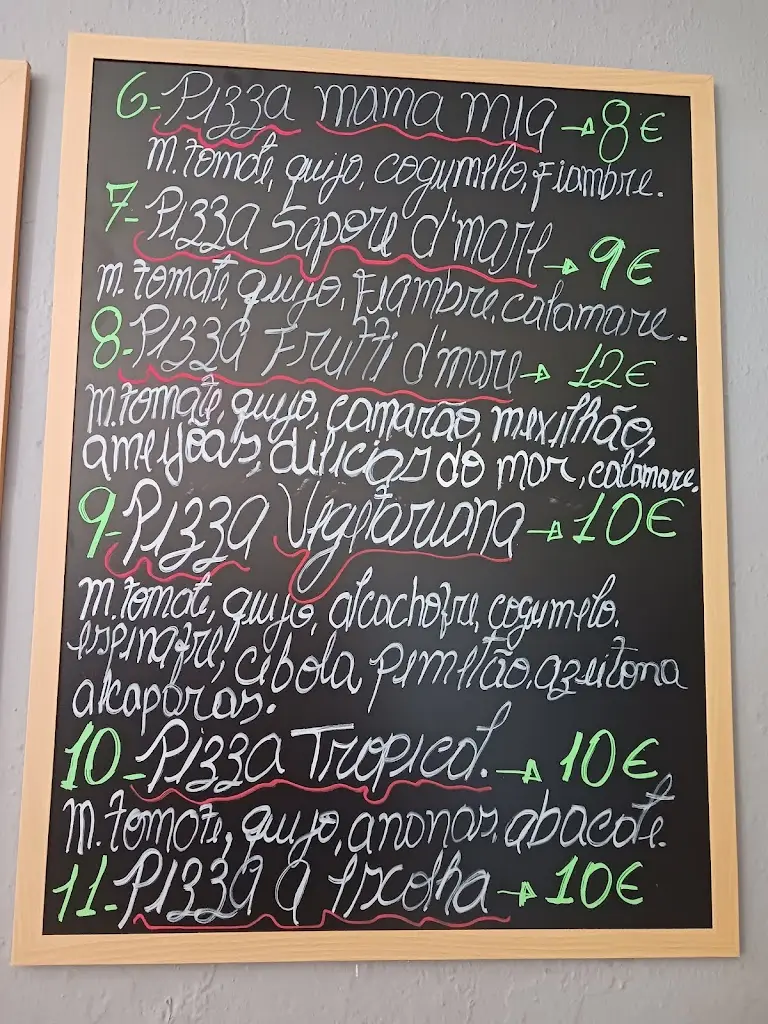 6-Pizza mama mia → 8€
m.tomate, queijo, cogumelo, fiambre.
7-Pizza Sapore d'mare → 9€
m.tomate, queijo, fiambre, calamare.
8-Pizza Frutti d'mare → 12€
m.tomate, queijo, camarão, mexilhão,
ameijõas, delicias do mar, calamare.
9-Pizza Vegetariana → 10€
m.tomate, queijo, alcachofre, cogumelo,
espinafre, cebola, pimetão, azeitona
alcaparas.
10-Pizza Tropical. → 10€
m.tomate, queijo, ananas, abacate.
11-Pizza a escolha → 10€